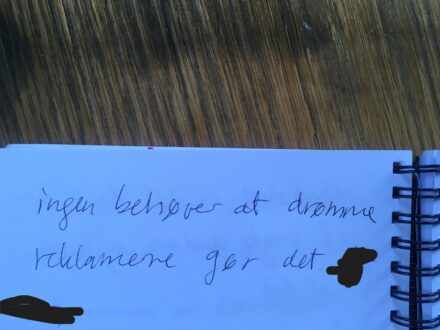 ingen behøver at drømme
reklamerne gør det